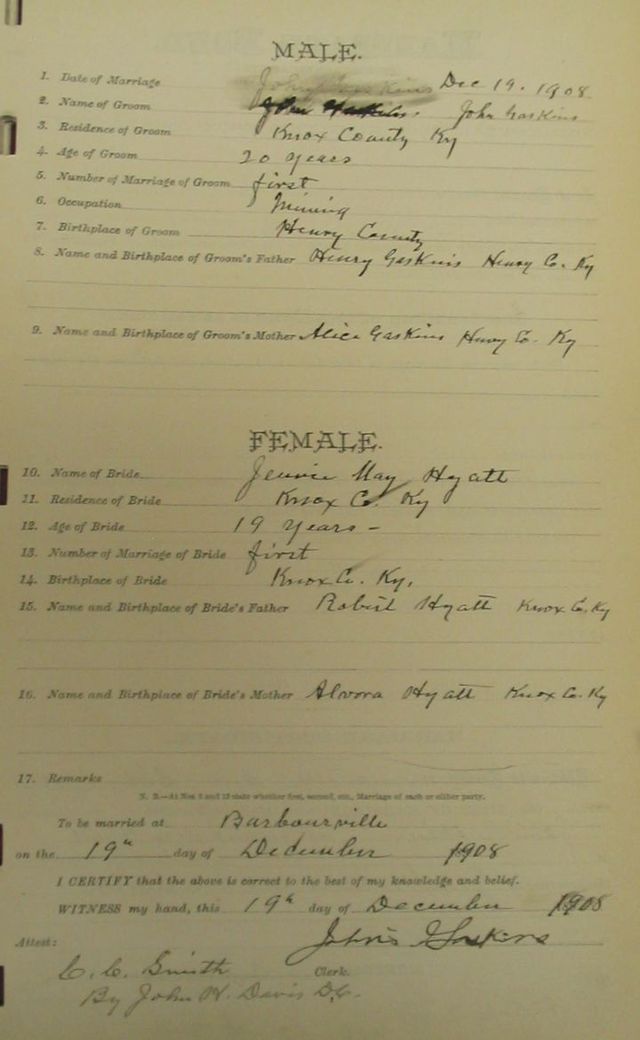 MALE.
1. Date of Marriage John Gaskins Dec 19. 1908
2. Name of Groom John Gaskins
3. Residence of Groom Knox County Ky
4. Age of Groom 20 years
5. Number of Marriage of Groom first
6. Occupation Mining
7. Birthplace of Groom Henry County
8. Name and Birthplace of Groom's Father Henry Gaskins Henry Co. Ky
9. Name and Birthplace of Groom's Mother Alice Gaskins Henry Co. Ky
FEMALE.
10. Name of Bride Jennie May Hyatt
11. Residence of Bride Knox Co. Ky
12. Age of Bride 19 years -
13. Number of Marriage of Bride first
14. Birthplace of Bride Knox Co. Ky.
15. Name and Birthplace of Bride's Father Robert Hyatt Knox Co. Ky
16. Name and Birthplace of Bride's Mother Hyatt Knox Co. Ky
17. Remarks
N. B.—At Nos 5 and 13 state whether first, second, etc., Marriage of each or either party.
To be married at Barbourville
on the 19th day of December 1908
I CERTIFY that the above is correct to the best of my knowledge and belief.
WITNESS my hand, this 19th day of December 1908
John Gaskins
Attest:
C. C. Smith Clerk.
By John H. Davis D.C.